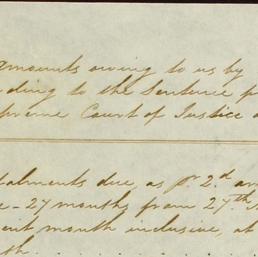 amounts owing to us by
ding to the Sentence p
preme Court of Justice
talments due, as pr. 2d an
27 months from 27th
ent month inclusive, at
th